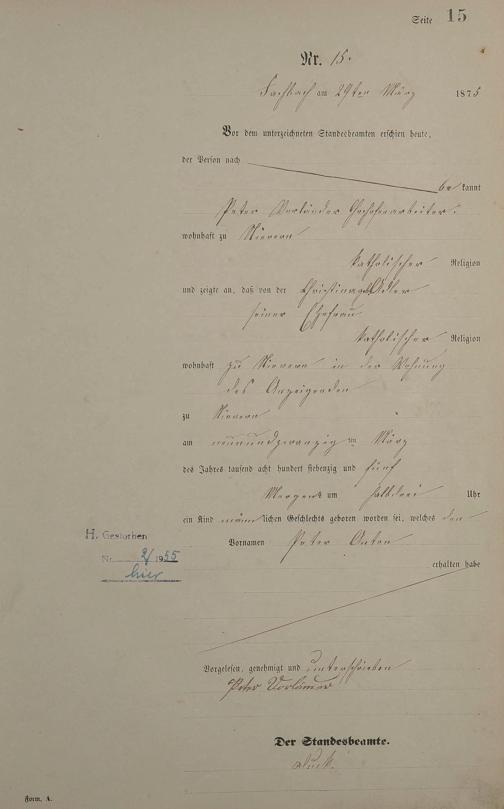 Seite 15
Nr. 15.
Fachbach am 29ten März 1875
Vor dem unterzeichneten Standesbeamten erschien heute,
der Person nach
be kannt
Peter Vorländer Hochofenarbeiter.
wohnhaft zu Nievern
katholischer Religion
und zeigte an, daß von der Christina Adler
seiner Ehefrau
katholischer Religion
wohnhaft zu Nievern in der Wohnung
des Anzeigenden
zu Nievern
am neunundzwanzigten März
des Jahres tausend acht hundert siebenzig und fünf
Morgens um halbdrei Uhr
ein Kind männlichen Geschlechts geboren worden sei, welches den
Vornamen Peter Anton
erhalten habe
H. Gestorben
Nr. 2/1955
hier
Vorgelesen, genehmigt und unterschrieben
Peter Vorländer
Der Standesbeamte.
Form. A.